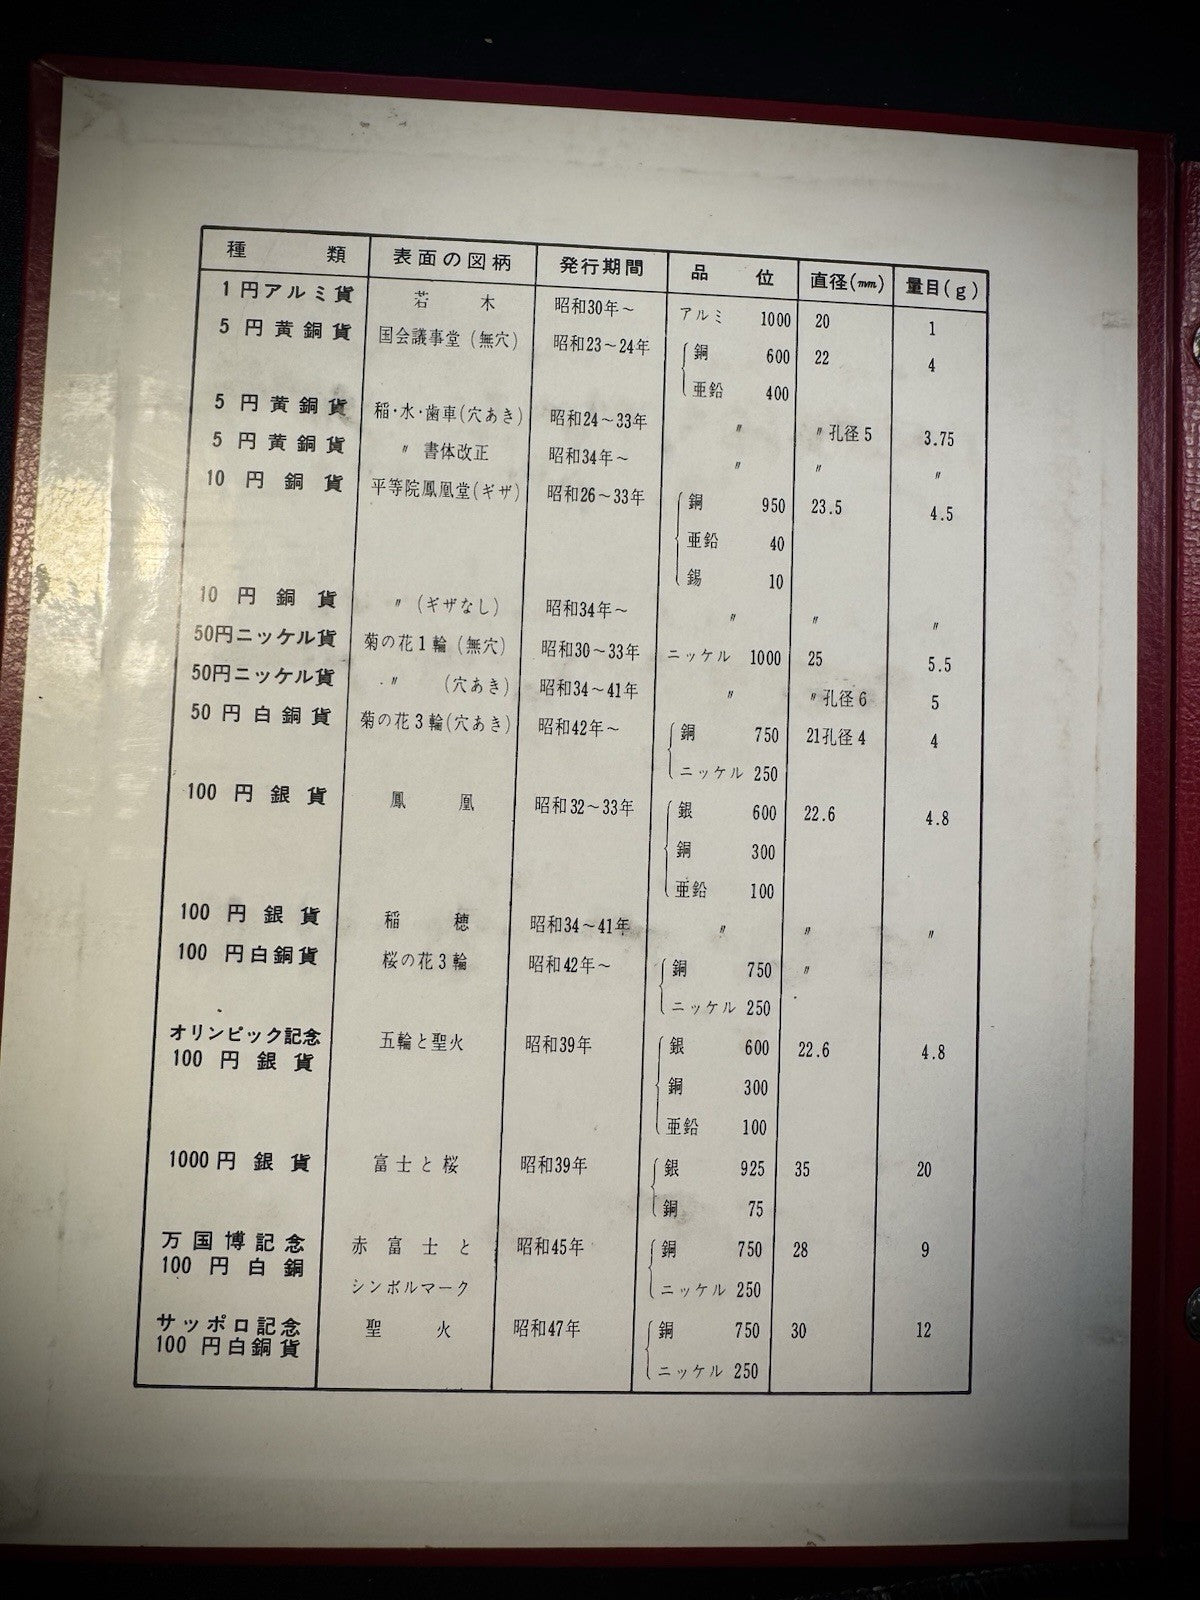 種 類 表面の図柄 発行期間 品 位 直径(mm) 量目(g)
1円アルミ貨 若 木 昭和30年～ アルミ 1000 20 1
5円黄銅貨 国会議事堂(無穴) 昭和23～24年 銅 600 22 4
亜鉛 400
5円黄銅貨 稲・水・歯車(穴あき) 昭和24～33年 〃 〃孔径5 3.75
5円黄銅貨 〃 書体改正 昭和34年～ 〃 〃 〃
10円銅貨 平等院鳳凰堂(ギザ) 昭和26～33年 銅 950 23.5 4.5
亜鉛 40
錫 10
10円銅貨 〃(ギザなし) 昭和34年～ 〃 〃 〃
50円ニッケル貨 菊の花1輪(無穴) 昭和30～33年 ニッケル 1000 25 5.5
50円ニッケル貨 〃 (穴あき) 昭和34～41年 〃 〃孔径6 5
50円白銅貨 菊の花3輪(穴あき) 昭和42年～ 銅 750 21孔径4 4
ニッケル 250
100円銀貨 鳳 凰 昭和32～33年 銀 600 22.6 4.8
銅 300
亜鉛 100
100円銀貨 稲 穂 昭和34～41年 〃 〃 〃
100円白銅貨 桜の花3輪 昭和42年～ 銅 750 〃
ニッケル 250
オリンピック記念 五輪と聖火 昭和39年 銀 600 22.6 4.8
100円銀貨 銅 300
亜鉛 100
1000円銀貨 富士と桜 昭和39年 銀 925 35 20
銅 75
万国博記念 赤富士と 昭和45年 銅 750 28 9
100円白銅 シンボルマーク ニッケル 250
サッポロ記念 聖 火 昭和47年 銅 750 30 12
100円白銅貨 ニッケル 250